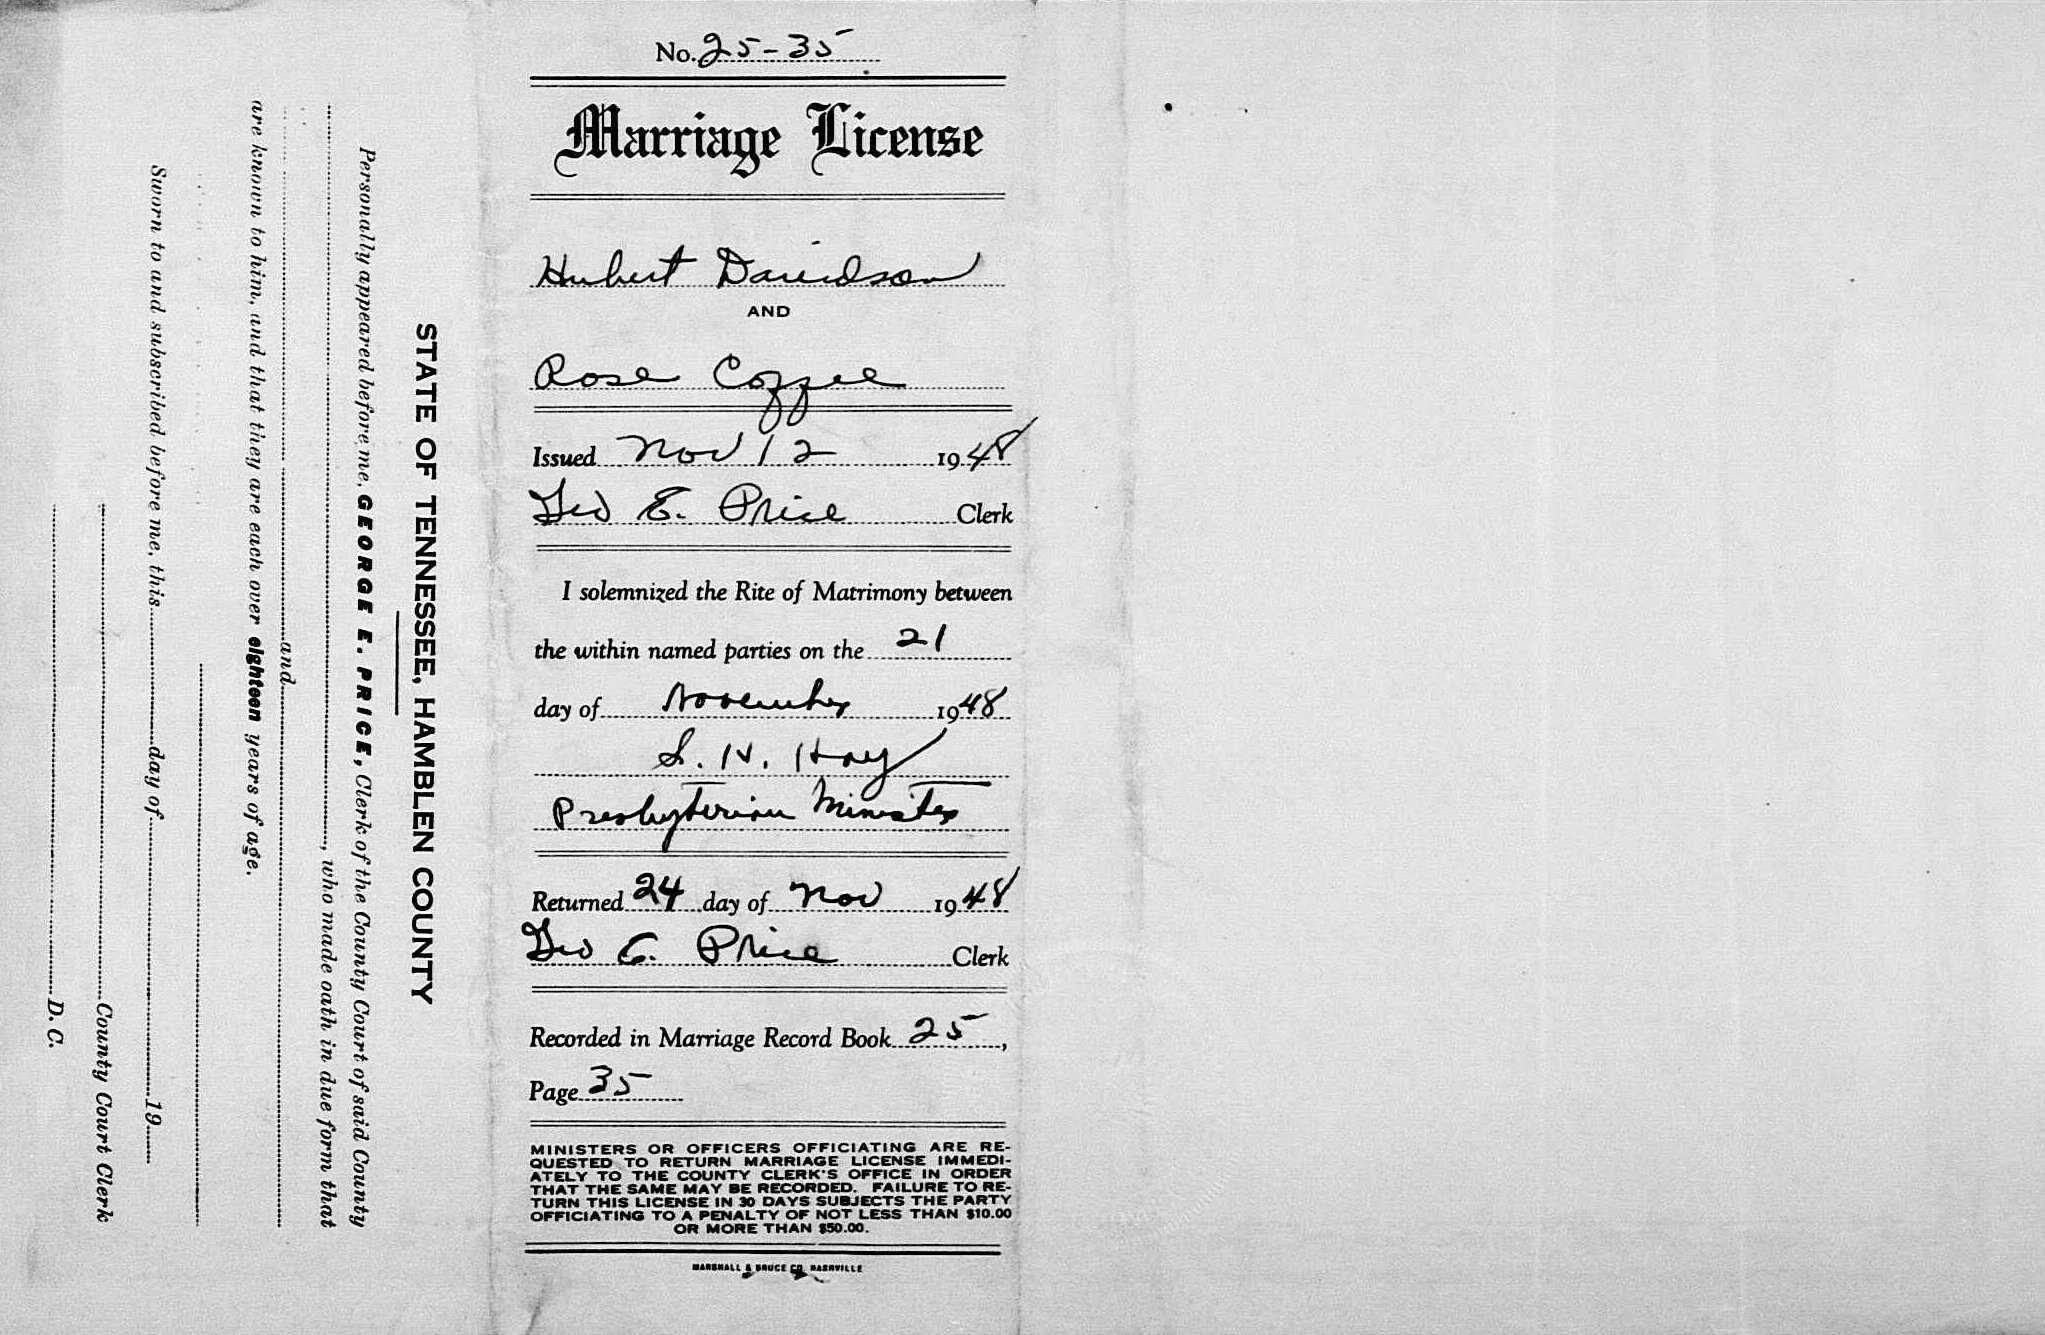 No. 25-35
Marriage License
Hubert Davidson
AND
Rose Coffee
Issued Nov 12 1948
Geo E. Price Clerk
I solemnized the Rite of Matrimony between
the within named parties on the 21
day of November 1948
S. N. Hay
Presbyterian Minister
Returned 24 day of Nov 1948
Geo E. Price Clerk
Recorded in Marriage Record Book 25,
Page 35
MINISTERS OR OFFICERS OFFICIATING ARE RE-
QUESTED TO RETURN MARRIAGE LICENSE IMMEDI-
ATELY TO THE COUNTY CLERK'S OFFICE IN ORDER
THAT THE SAME MAY BE RECORDED. FAILURE TO RE-
TURN THIS LICENSE IN 30 DAYS SUBJECTS THE PARTY
OFFICIATING TO A PENALTY OF NOT LESS THAN $10.00
OR MORE THAN $50.00.
MARSHALL & BRUCE CO. NASHVILLE
STATE OF TENNESSEE, HAMBLEN COUNTY
Personally appeared before me, GEORGE E. PRICE, Clerk of the County Court of said County
, who made oath in due form that
and
are known to him, and that they are each over eighteen years of age.
Sworn to and subscribed before me, this day of 19
County Court Clerk
D. C.